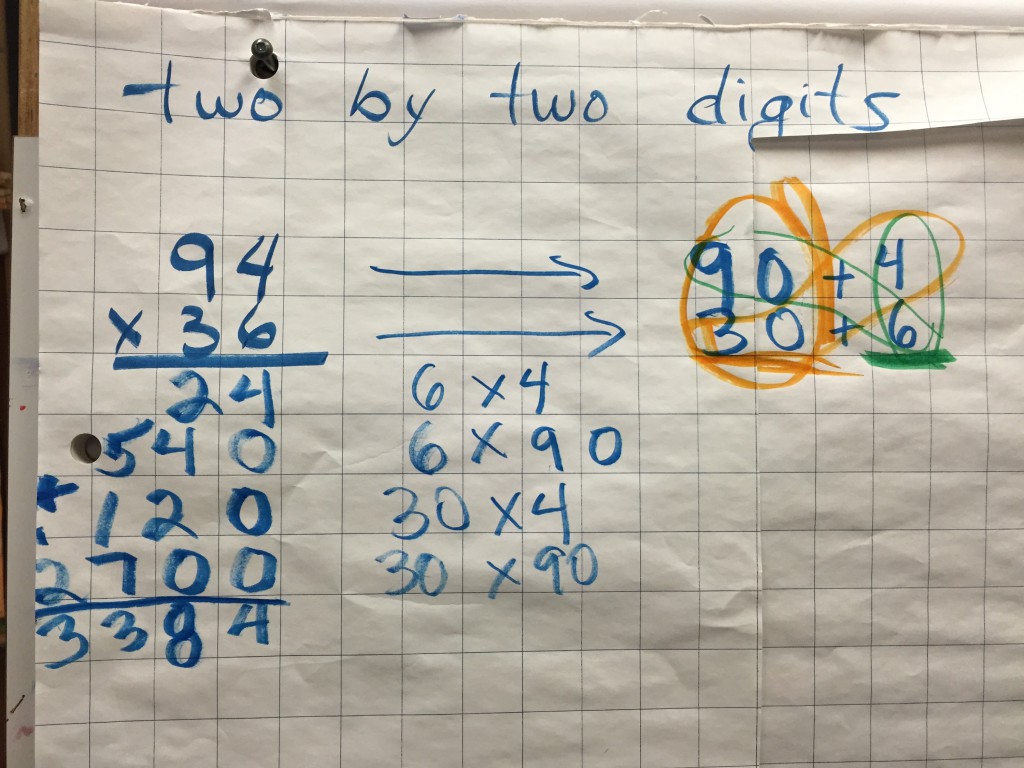 two by two digits
94 90 + 4
x 36 30 + 6
24 6 x 4
540 6 x 90
120 30 x 4
2700 30 x 90
3384